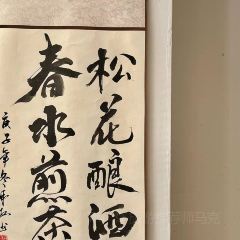 松花酿酒
春水煎茶
庚子年冬
师马克